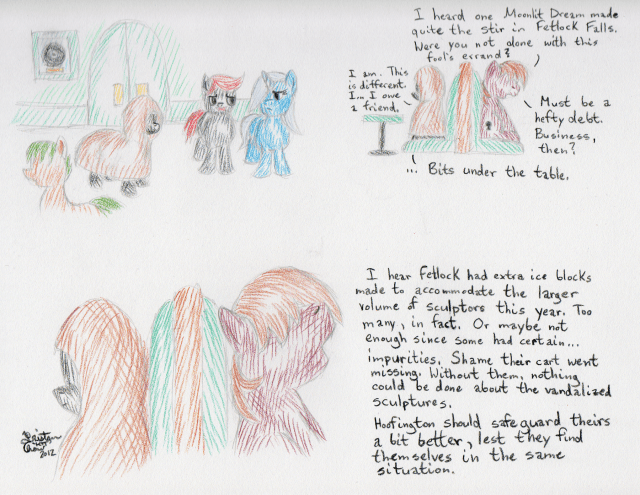 I heard one Moonlit Dream made
quite the stir in Fetlock Falls.
Were you not done with this
fool's errand?
I am. This
is different.
I... I owe
a friend.
Must be a
hefty debt.
Business,
then?
... Bits under the table.
I hear Fetlock had extra ice blocks
made to accommodate the larger
volume of sculptors this year. Too
many, in fact. Or maybe not
enough since some had certain...
impurities. Shame their cart went
missing. Without them, nothing
could be done about the vandalized
sculptures.
Hoofington should safeguard theirs
a bit better, lest they find
themselves in the same
situation.
2012